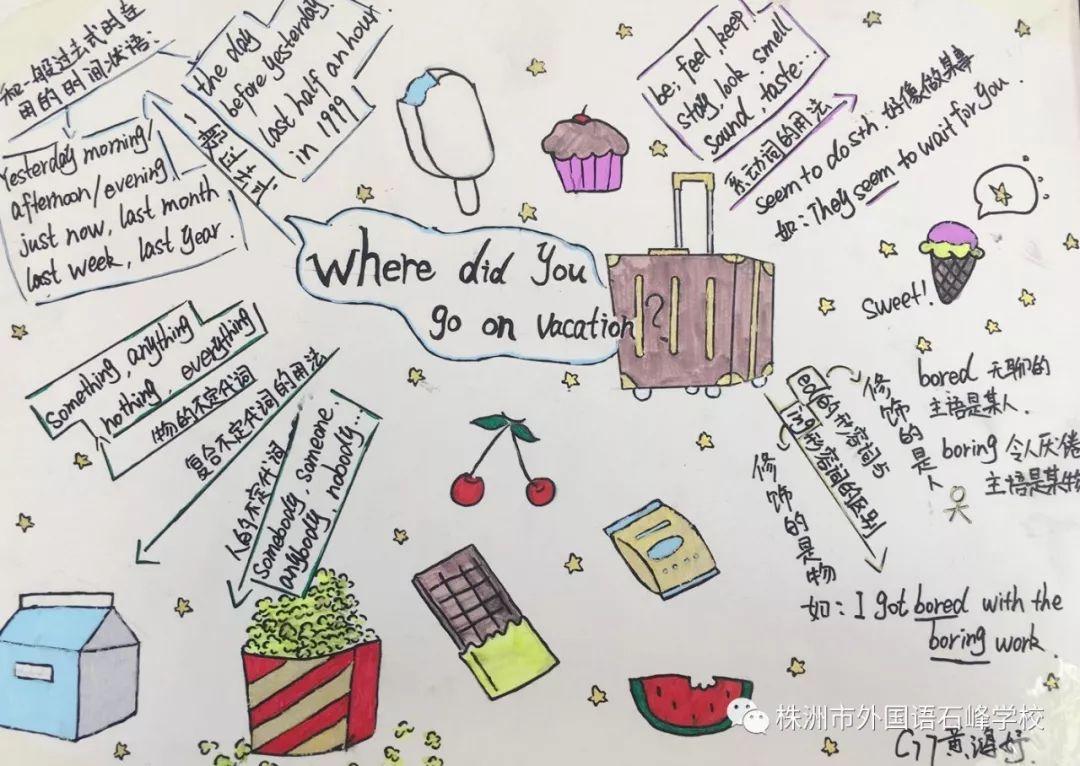 Where did You
go on vacation?
一般过去式
和一般过去式时连
用的时间状语:
Yesterday morning/
afternoon/evening,
just now, last month,
last week, last year.
the day
before yesterday.
last half an hour
in 1999
be; feel, keep
stay, look, smell
sound, taste...
系动词的用法
seem to do sth. 好像做某事
如: They seem to wait for you.
sweet!
something, anything
nothing, everything
物的不定代词
复合不定代词的用法
人的不定代词
Somebody, someone
anybody, nobody...
ed的形容词与
ing形容词的区别
修饰的是人
修饰的是物
bored 无聊的
主语是某人.
boring 令人厌倦
主语是某物
如: I got bored with the
boring work.
株洲市外国语石峰学校
C77 黄